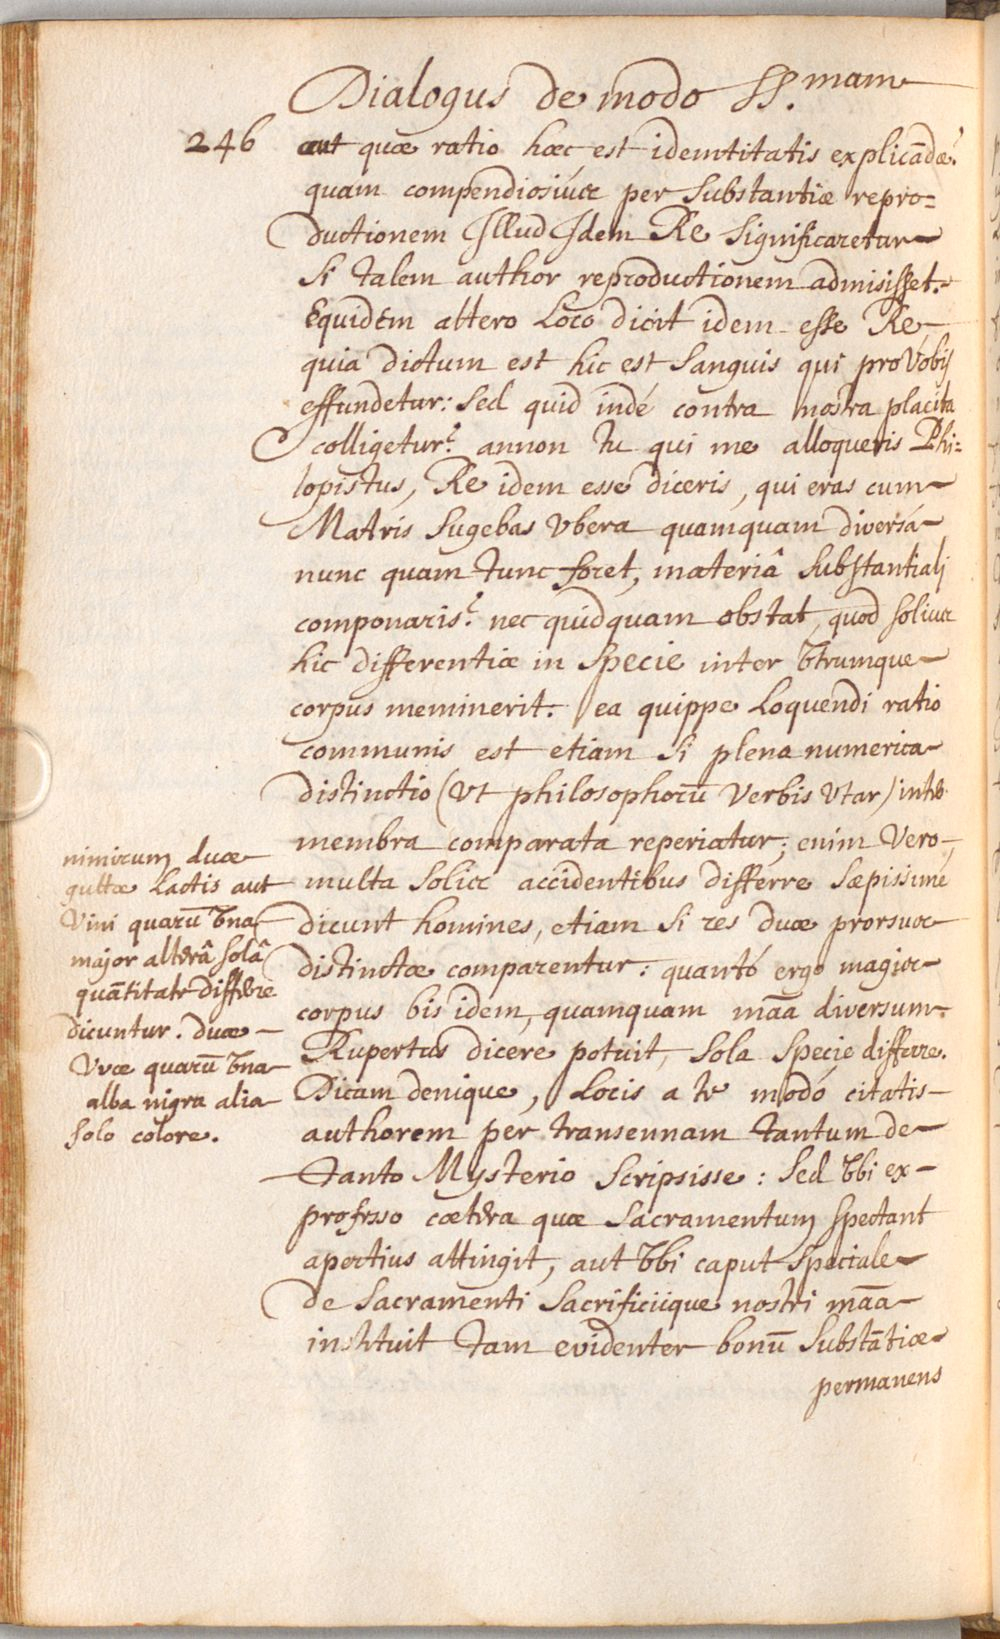 Dialogus de modo SS.mam
246
aut quæ ratio hæc est idemtitatis explicādæ?
quam compendiosius per substantiæ repro=
ductionem Illud Idem Re significaretur
si talem author reproductionem admisisset.
Equidem altero Loco dicit idem esse Re
quia dictum est hic est sanguis qui pro Vobis
effundetur: sed quid indé contra nostra placita
colligetur? annon tu qui me alloqueris Phi=
lopistus, Re idem esse diceris, qui eras cum
Matris sugebas Vbera quamquam diversâ
nunc quam tunc foret, materiâ substantiali
componaris? nec quidquam obstat, quod solius
hic differentiæ in specie inter Vtrumque
corpus meminerit. ea quippe Loquendi ratio
communis est etiam si plena numerica
distinctio (Vt philosophorū Verbis Vtar) inter
membra comparata reperiatur; enim Vero
multa solis accidentibus differre sæpissimé
dicunt homines, etiam si res duæ prorsus
distinctæ comparentur: quantó ergo magis
corpus bis idem, quamquam māa diversum
Rupertus dicere potuit, sola specie differre.
Dicam denique, Locis a te modó citatis
authorem per transennam tantum de
tanto Mysterio scripsisse: sed Vbi ex
professo cætera quæ sacramentum spectant
apertius attingit, aut Vbi caput speciale
de sacramenti sacrificiique nostri māa
instituit tam evidenter bonū substātiæ
permanens
nimirum duæ
guttæ Lactis aut
Vini quarū Vna
major alterâ solâ
quātitate differre
dicuntur. duæ
Vvæ quarū Vna
alba nigra alia
solo colore.